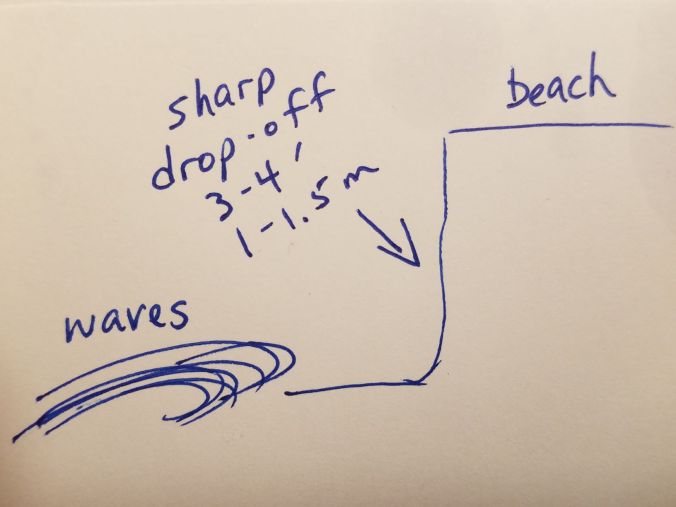 sharp
drop-off
3-4'
1-1.5 m
beach
waves